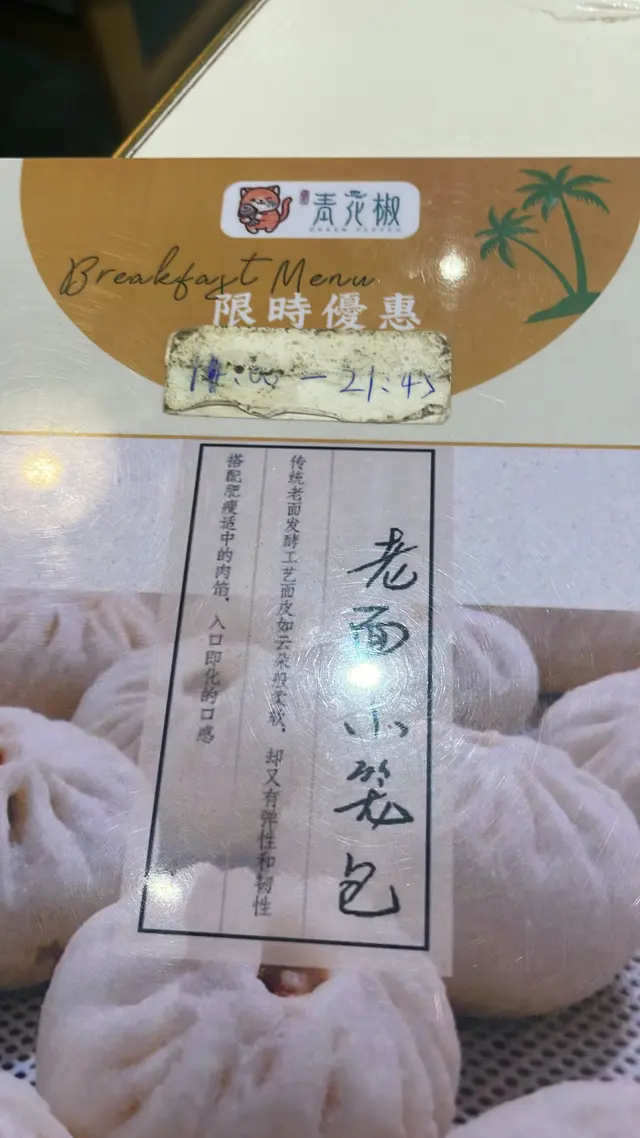 青花椒
GREEN PEPPER
Breakfast Menu
限時優惠
14:00 — 21:45
老面小笼包
传统老面发酵工艺面皮如云朵般柔软，却又有弹性和韧性
搭配肥瘦适中的肉馅，入口即化的口感